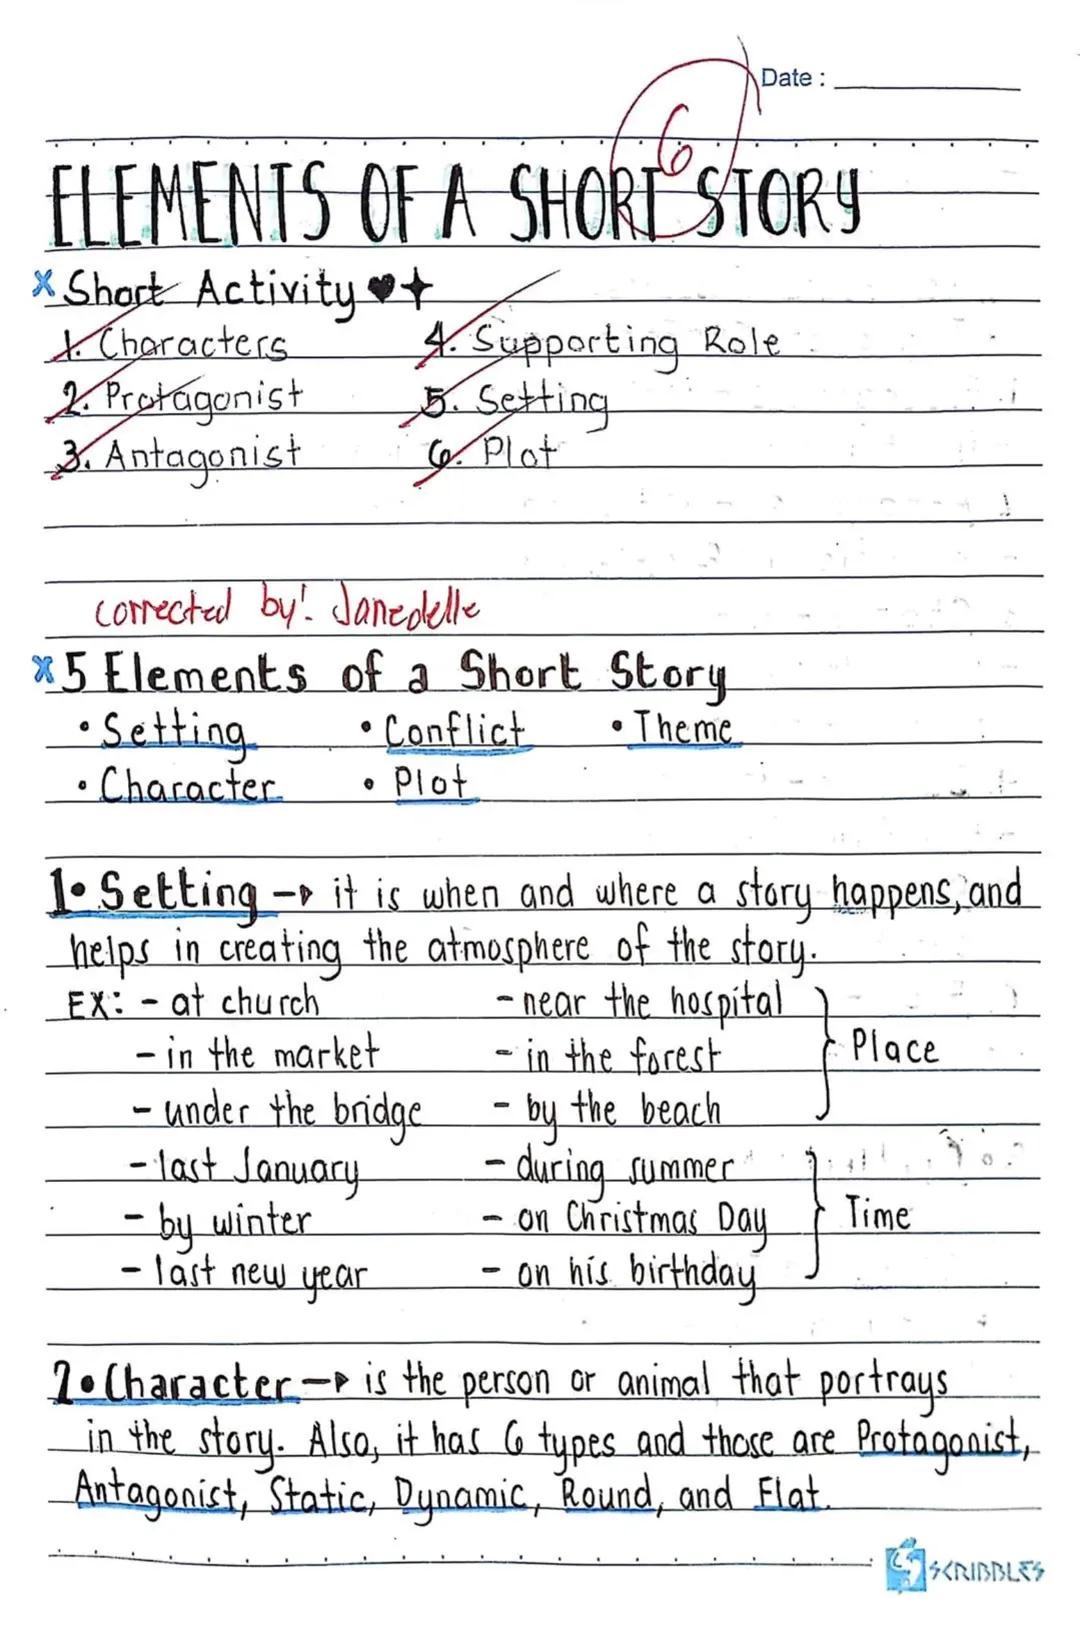 Date :
6
ELEMENTS OF A SHORT STORY
x Short Activity ♥✦
1. Characters 4. Supporting Role
2. Protagonist 5. Setting
3. Antagonist 6. Plot
corrected by: Janedelle
x 5 Elements of a Short Story
• Setting • Conflict • Theme
• Character • Plot
1• Setting → it is when and where a story happens, and
helps in creating the atmosphere of the story.
EX: - at church - near the hospital
- in the market - in the forest } Place
- under the bridge - by the beach
- last January - during summer
- by winter - on Christmas Day } Time
- last new year - on his birthday
2• Character → is the person or animal that portrays
in the story. Also, it has 6 types and those are Protagonist,
Antagonist, Static, Dynamic, Round, and Flat.
SCRIBBLES